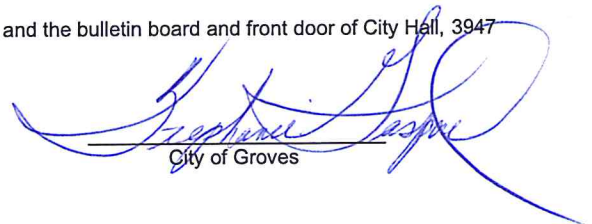 and the bulletin board and front door of City Hall, 3947
Stephanie
City of Groves